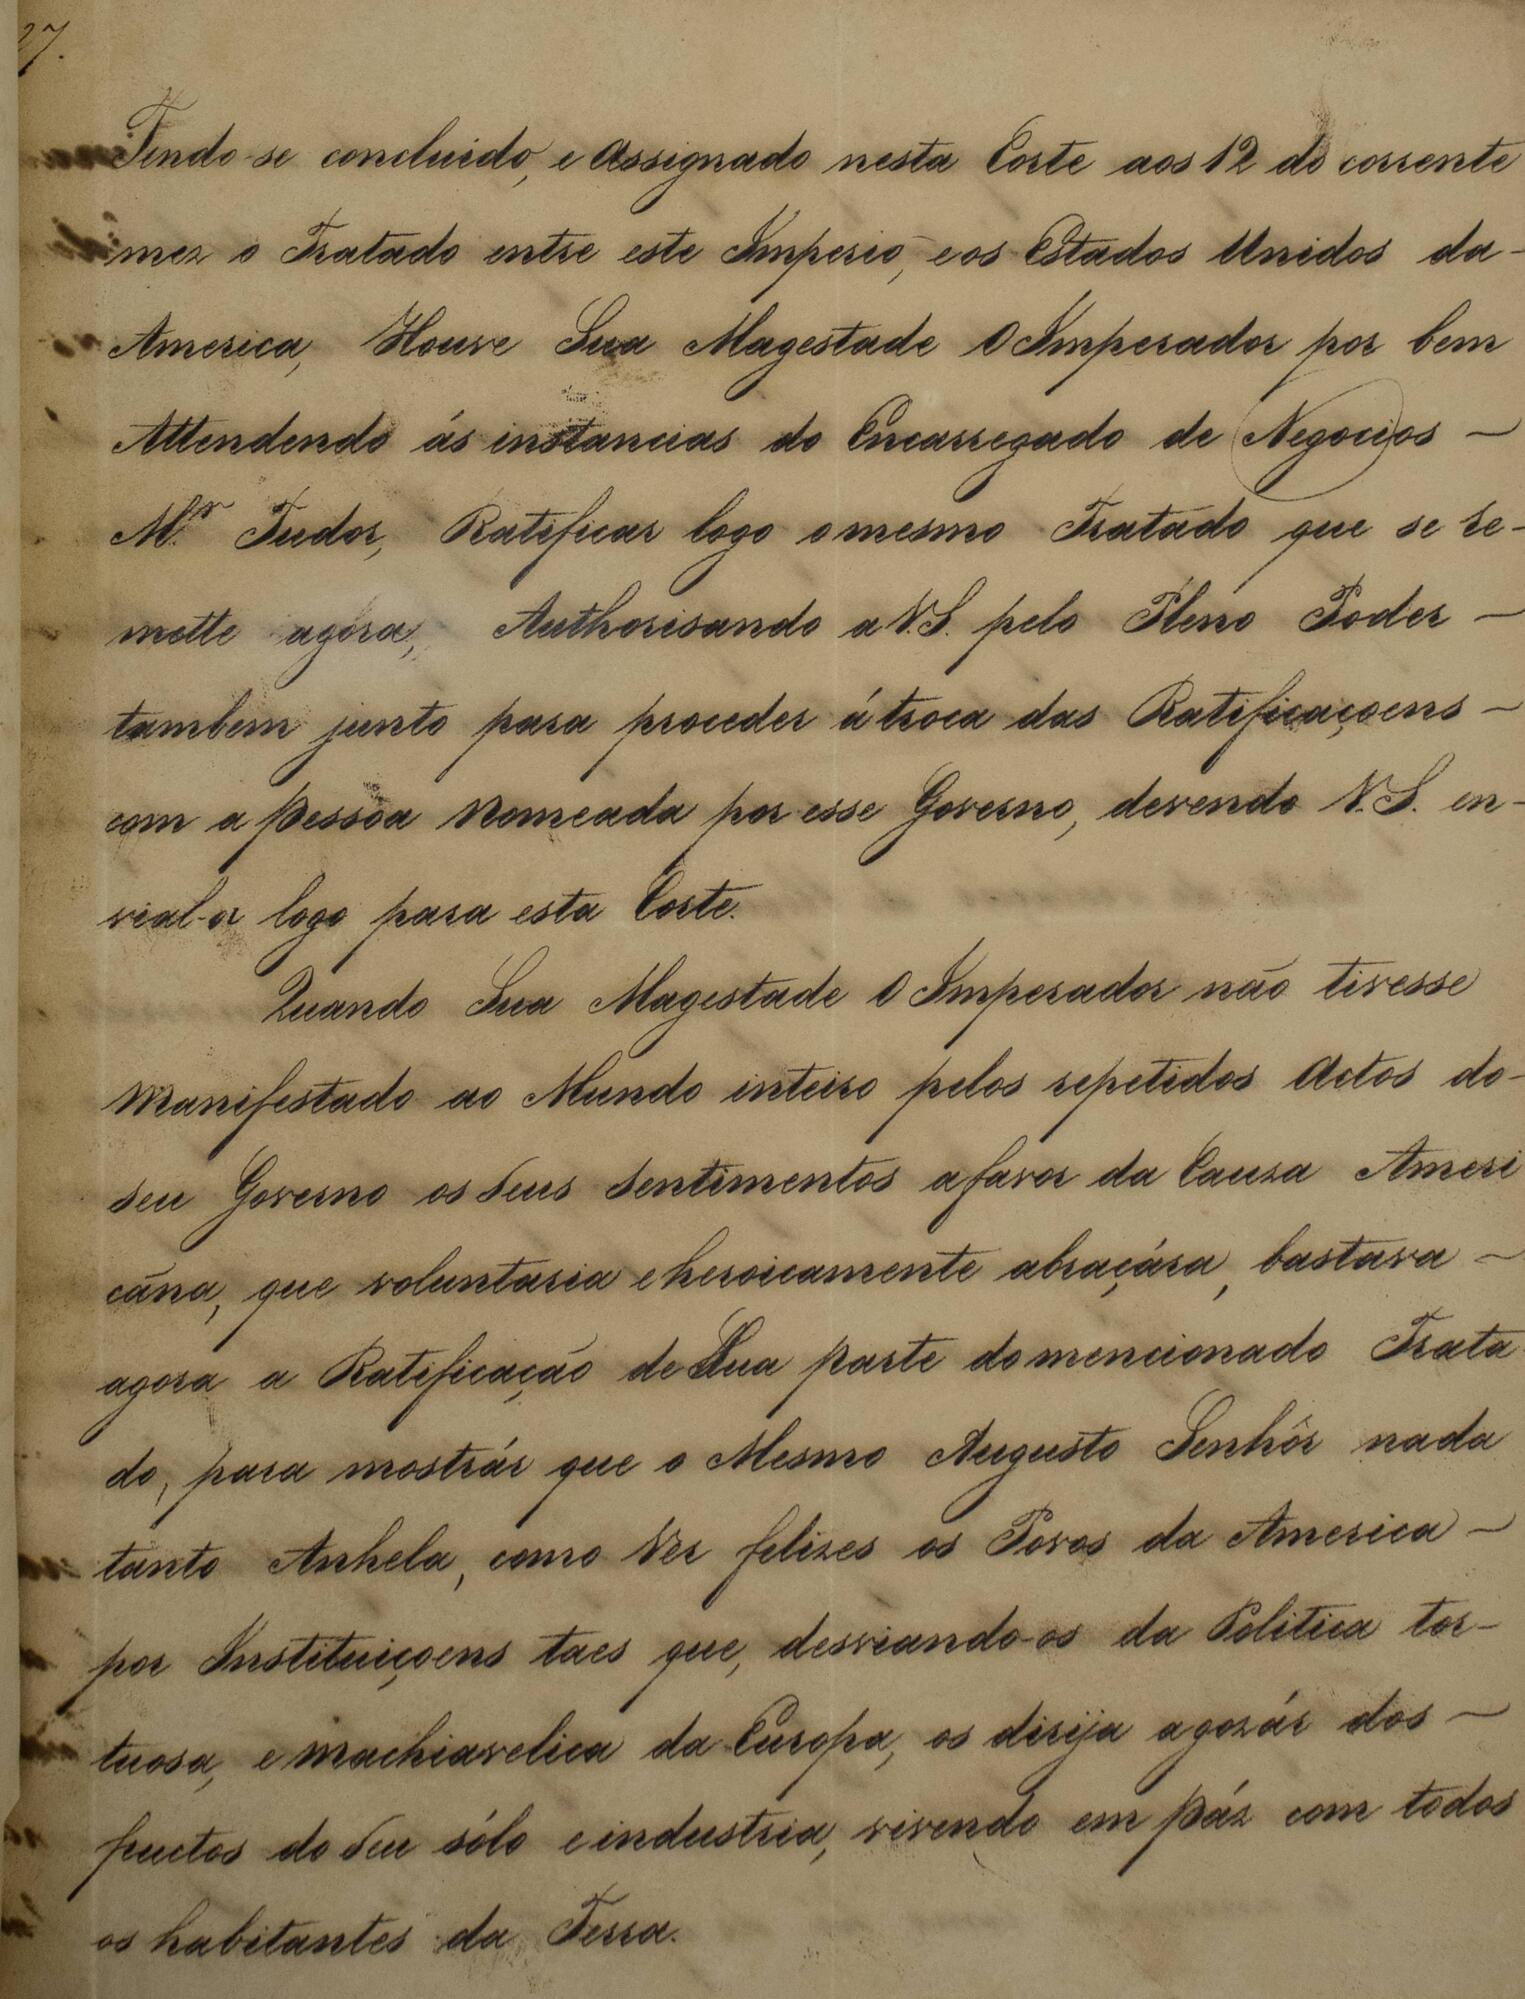 27.
Tendo-se concluido, e Assignado nesta Corte aos 12 do corrente
mez o Tratado entre este Imperio, e os Estados Unidos da-
America, Houve Sua Magestade O Imperador por bem
Attendendo ás instancias do Encarregado de Negocios -
M.r Tudor, Ratificar logo o mesmo Tratado que se re-
mette agora, Authorisando a V.S. pelo Pleno Poder -
tambem junto para proceder á troca das Ratificaçoens -
com a Pessoa Nomeada por esse Governo, devendo V.S. en-
vial-a logo para esta Corte.
Quando Sua Magestade O Imperador não tivesse
Manifestado ao Mundo inteiro pelos repetidos Actos do-
seu Governo os seus sentimentos a favor da Causa Ameri
cána, que voluntaria e heroicamente abraçára, bastava -
agora a Ratificação de Sua parte do mencionado Trata
do, para mostrár que o Mesmo Augusto Senhôr nada
tanto Anhela, como Ver felizes os Povos da America -
por Instituiçoens taes que, desviando-os da Politica tor-
tuosa, e machiavelica da Europa, os dirija a gozár dos -
fructos do seu sólo e industria, vivendo em páz com todos
os habitantes da Terra.